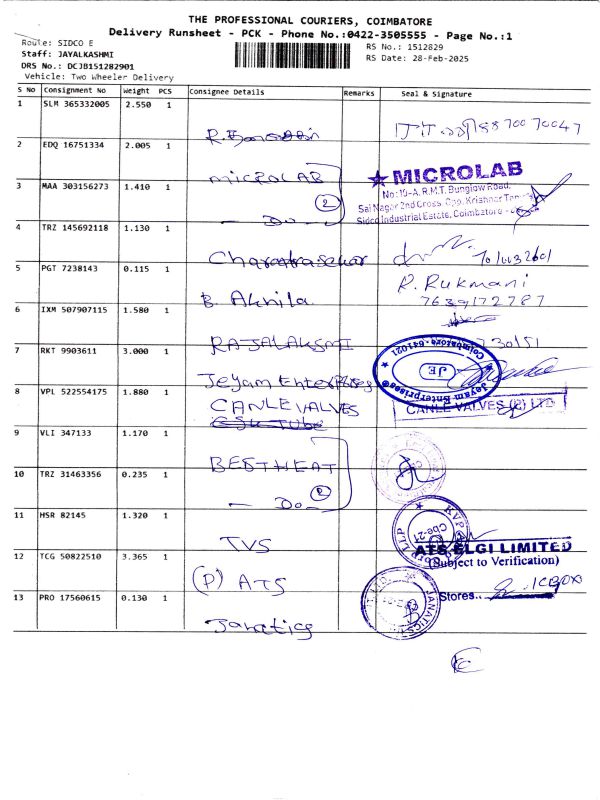 THE PROFESSIONAL COURIERS, COIMBATORE
Delivery Runsheet - PCK - Phone No.:0422-3505555 - Page No.:1
Route: SIDCO E
Staff: JAYALKASHMI
DRS No.: DCJB151282901
Vehicle: Two Wheeler Delivery
RS No.: 1512829
RS Date: 28-Feb-2025
S No Consignment No Weight PCS Consignee Details Remarks Seal & Signature
1 SLM 365332005 2.550 1
2 EDQ 16751334 2.005 1 MICROLAB
3 MAA 303156273 1.410 1 - Do - 2
★ MICROLAB
No:10-A, R.M.T. Bunglow Road,
Sai Nagar 2nd Cross, Opp. Krishnar Temple
Sidco Industrial Estate, Coimbatore -
4 TRZ 145692118 1.130 1
5 PGT 7238143 0.115 1 B. Akhila R. Rukmani
7639172787
6 IXM 507907115 1.580 1 RAJALAKSMI
7 RKT 9903611 3.000 1 Jeyam Enterprises
Coimbatore - 641021
JE
Jeyam Enterprises
8 VPL 522554175 1.880 1 CANLE VALVES CANLE VALVES (P) LTD
9 VLI 347133 1.170 1 BESTHEAT
10 TRZ 31463356 0.235 1 - Do - 2
11 HSR 82145 1.320 1 TVS
Cbe-21
12 TCG 50822510 3.365 1 (P) ATS
ATS ELGI LIMITED
(Subject to Verification)
Stores..
13 PRO 17560615 0.130 1 Janatics
JANATICS